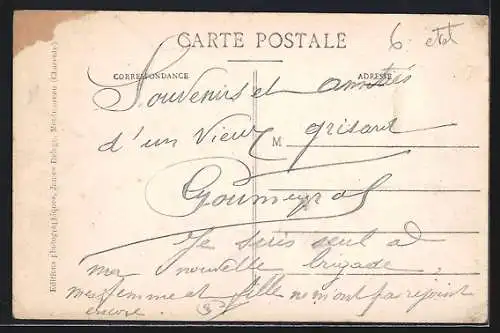 CARTE POSTALE
6
CORRESPONDANCE
ADRESSE
Souvenirs et amitiés
d'un vieux grisard
M
Je suis seul a
ma nouvelle brigade
mes femme et fille ne m'ont pas rejoint
encore
Editions photographiques, James Delage, (Charente)